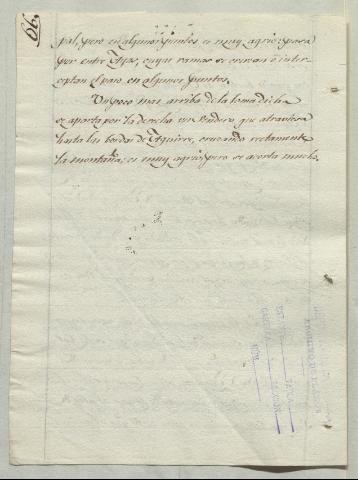 66.
pal, pero en algunos puntos es muy agrio: pasa
por entre Ayas, cuyas ramas se cruzan è inter-
ceptan el paso en algunos puntos.
Un poco mas arriba de la loma dicha
se aparta por la derecha un sendero, que atraviesa
hasta las bordas de Aguirre, cruzando rectamente
la montaña; es muy agrio, pero se acorta mucho.